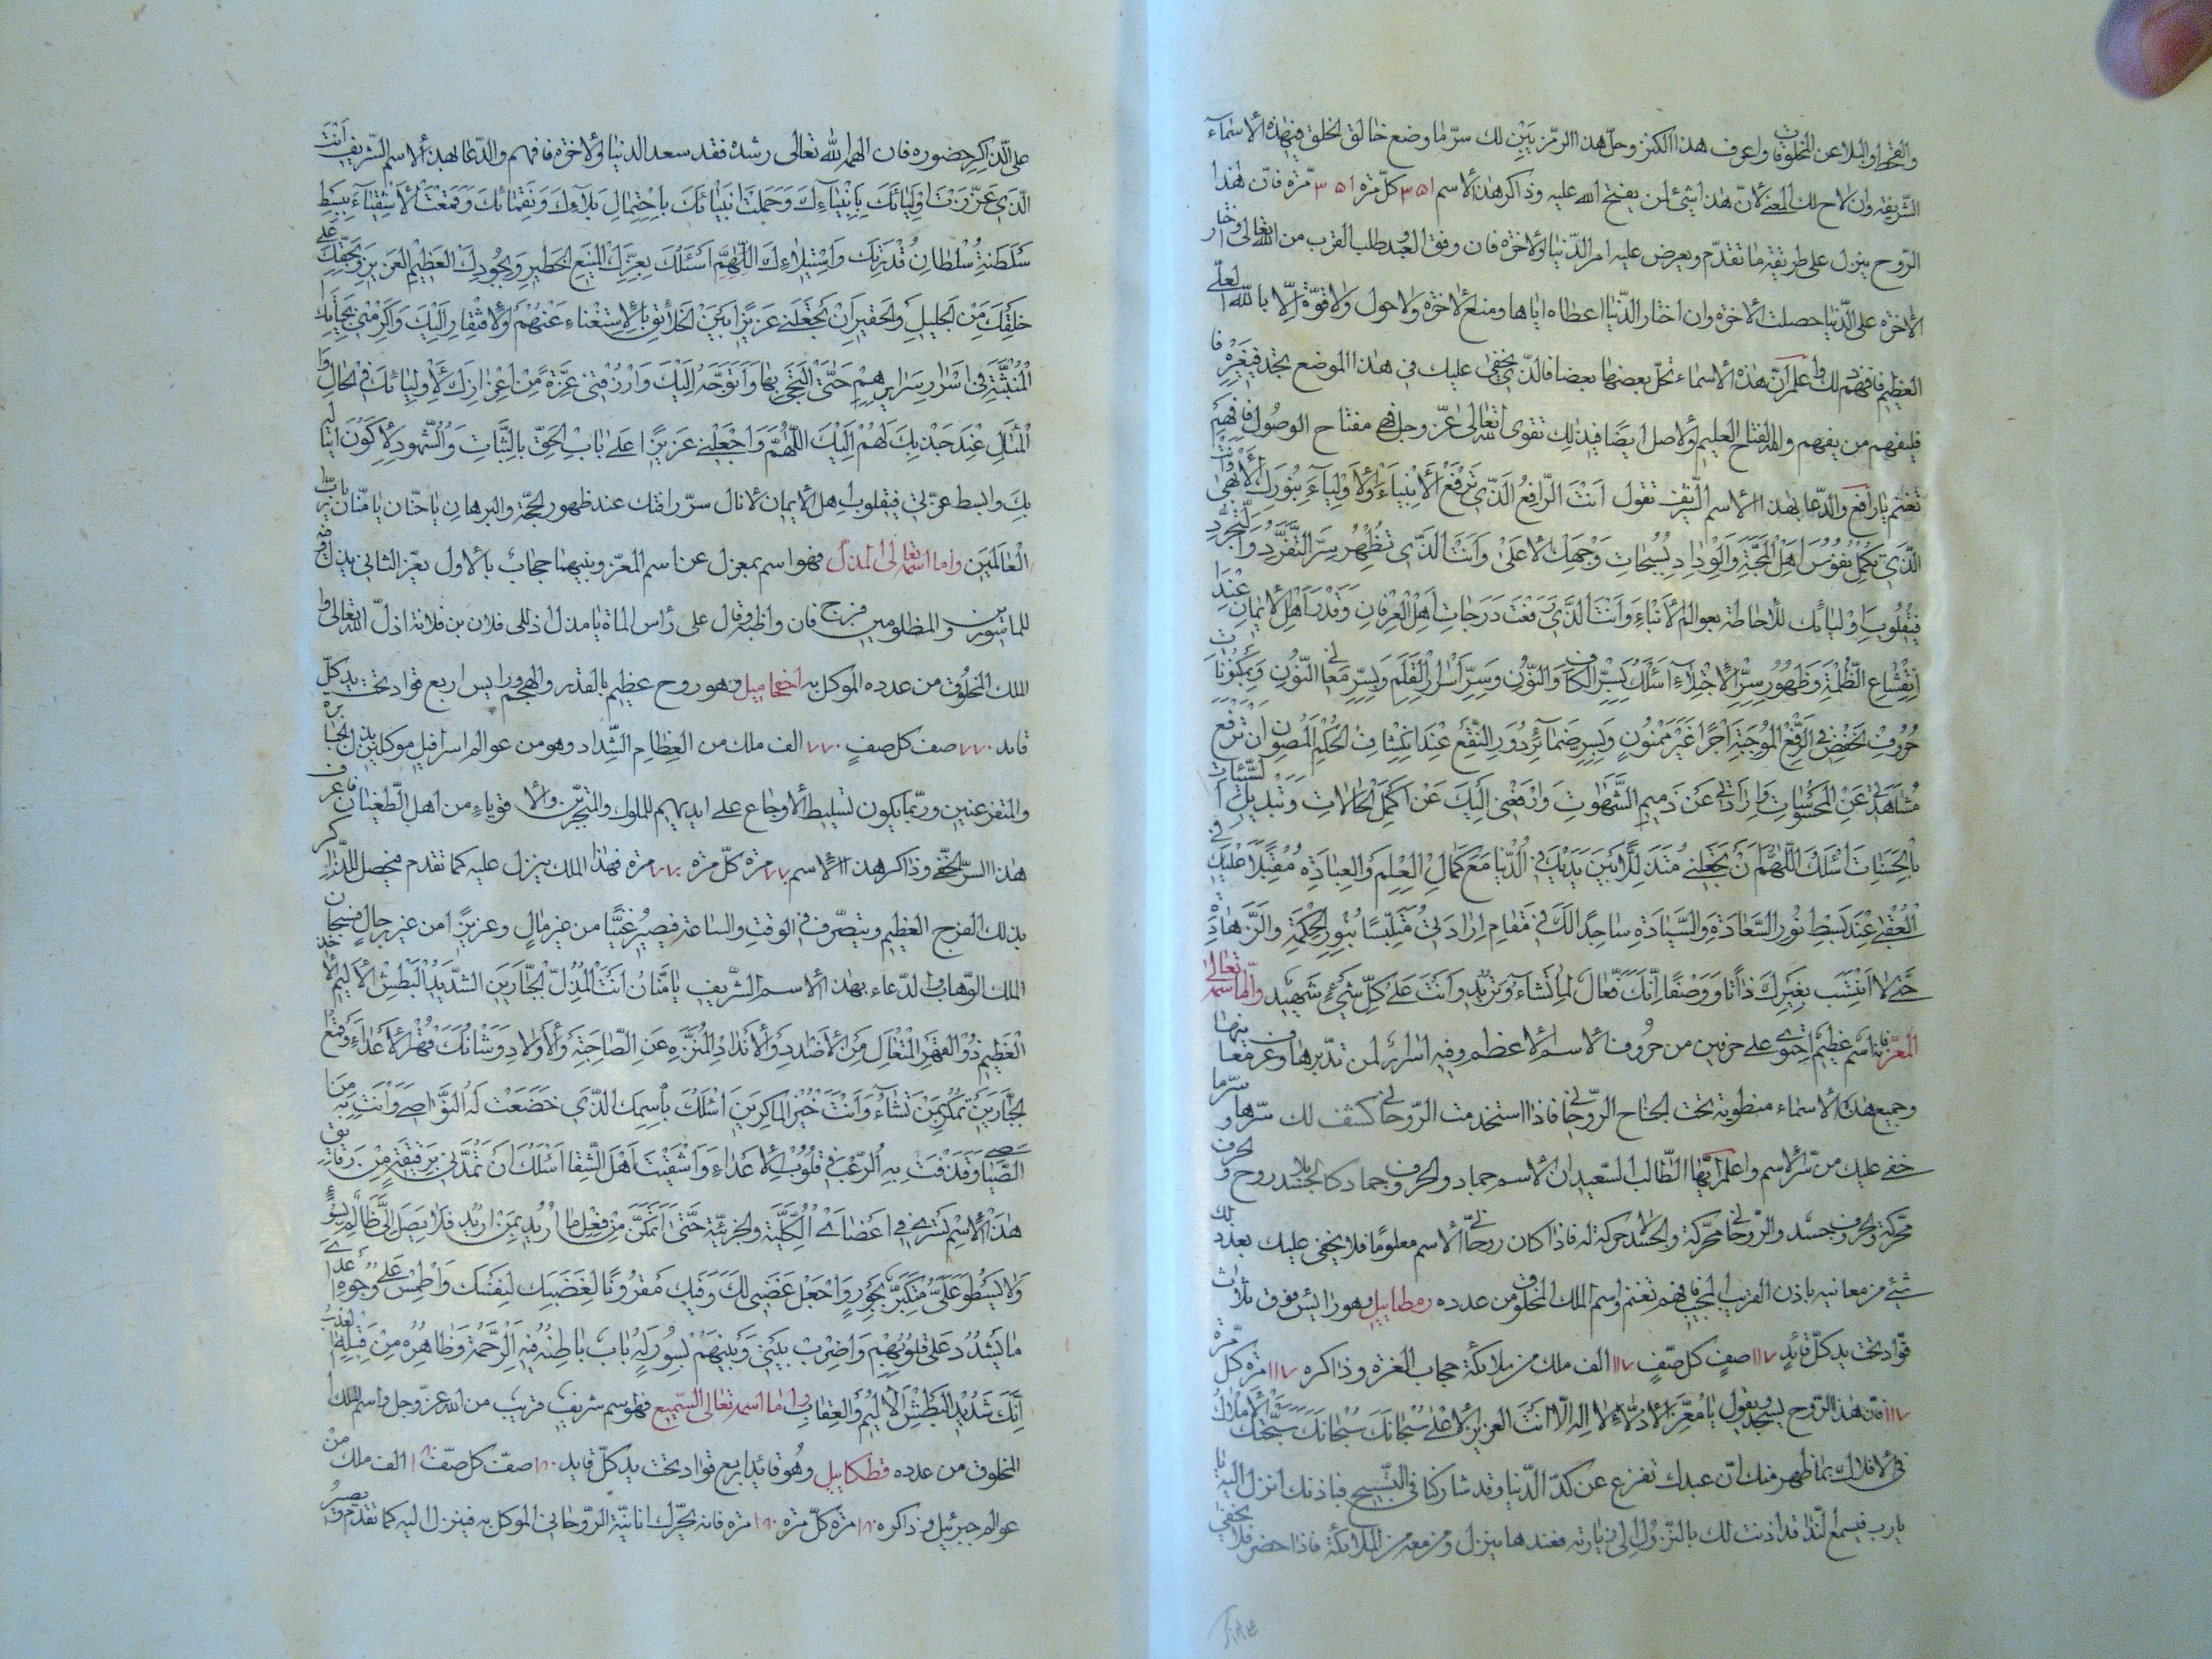 والقحط والبلا عن المخلوقات واعرف هذا الكنز وحل هذا الرمز يبين لك سر ما وضع خالق الخلق فى هذه الاسماء
الشريفة وان لاح لك المعنى لان هذا شئ لمن يفتح الله عليه وذاكر هذا الاسم ٣٥١ كل مرة ٣٥١ مرة فان هذا
الروح ينزل على طريقة ما تقدم ويعرض عليه امر الدنيا والاخرة فان وفق العبد وطلب القرب من الله تعالى واختار
الاخرة على الدنيا حصلت الاخرة وان اختار الدنيا اعطاه اياها ومنع الاخرة ولا حول ولا قوة الا بالله العلى
العظيم فافهم ذلك واعلم ان هذه الاسماء تحل بعضها بعضا فالذى يخفى عليك فى هذا الموضع تجده فى غيره
فليفهم من يفهم والله الفتاح العليم والاصل ايضا فى ذلك تقوى الله تعالى عز وجل فهى مفتاح الوصول فافهم
تغنم يا رافع والدعا بهذا الاسم الشريف تقول انت الرافع الذى ترفع الانبياء والاولياء بنورك الابهى وانت
الذى تكمل نفوس اهل المحبة والوداد بسبحات وجهك الاعلى وانت الذى تظهر سر التفرد والتجرد
فى قلوب اوليائك للاحاطة بعوالم الانباء وانت الذى رفعت درجات اهل العرفان وقدر اهل الايمان عند
انقشاع الظلمة وظهور سر الاجتلاء اسألك بسر الكاف والنون وسر اسرار القلم وبسر معانى النون وبمكنونات
حروف الخفض فى الرفع الموجبة اجرا غير ممنون وبسر ضمائر دور النفع عند انكشاف الحكم المصون ان ترفع
مشاهدتى عن المحسوسات وارادتى عن ذميم الشهوات وارفعنى اليك عن اكمل الحالات وتبديل السيئات
بالحسنات اسئلك اللهم ان تجعلنى متذللا بين يديك فى الدنيا مع كمال العلم والعبادة مقبلا عليك فى
العقبى عند بسط نور السعادة والسيادة ساجدا لك فى مقام ارادتى متلبسا بنور الحكمة والزهادة
حتى لا انتسب بغيرك ذاتا ووصفا انك فعال لما تشاء وتريد وانت على كل شئ شهيد واما اسمه تعالى
المعز فانه اسم عظيم احتوى على حرفين من حروف الاسم الاعظم وفيه اسرار لمن تدبرها وعرف معانيها
وجميع هذه الاسماء منطوية تحت الجناح الروحانى فاذا استخدمت الروحانى كشف لك سرها وسر ما
خفى عليك من سر الاسم واعلم ايها الطالب السعيد ان الاسم جماد والحروف جماد كالجسد بلا روح والحرف
محركة والحروف جسد والروحانى محركة والجسد لا حركة له فاذا كان روحانى الاسم معلوما فلا يخفى عليك بعد ذلك
شئ من معانيه باذن القريب المجيب فافهم تغنم واسم الملك المخلوق من عدده رمطاييل وهو رائيس فوق ثلاث
قواد تحت يد كل قائد ١١٧ صف كل صف ١١٧ الف ملك من ملائكة حجاب العزة وذاكره ١١٧ مرة كل مرة
١١٧ فان هذا الروح يسجد ويقول يا معز الاذلاء لا اله الا انت العزيز الاعلى سبحانك سبحانك سبحتك الاملاك
فى الافلاك بما ظهر منك ان عبدك تفزع عن كد الدنيا وقد شاركنا فى التسبيح فباذنك انزل اليه يا
يا رب فيسمع النداء قد اذنت لك بالنزول الى زيارته فعندها ينزل ومن معه من الملائكة فاذا حضر فلا يخفى
على الذاكر حضوره فان الهم الله تعالى رشده فقد سعد الدنيا والاخرة فافهم والدعا بهذا الاسم الشريف انت
الذى عززت اوليائك بانبيائك وحملت انبيائك باحتمال بلائك ونقمائك وقمعت الاشقياء ببسط
سلطنة سلطان قدرتك واستيلاءك اللهم اسئلك بعزك المنيع الخطير وبجودك العظيم العزيز وبحقك على
خلقك من الجليل والحقير ان تجعلنى عزيزا بين الخلائق بالاستغناء عنهم والافتقار اليك واكرمنى بنجاتك
المنبثة فى اسرار سرايرهم حتى التجى بها واتوجه اليك وارزقنى عزة من اعزازك لاوليائك فى الحال وا
المثال عند جذبك لهم اليك اللهم واجعلنى عزيزا على باب الحق بالثبات والشهود لاكون اليه
بك وابسط عزتى فى قلوب اهل الايمان لانال سر رافتك عند ظهور الحجة والبرهان يا حنان يا منان يا رب
العالمين واما اسمه تعالى المذل فهو اسم بمعزل عن اسم المعز وبينهما حجاب بالاول يعز الثانى يذل وفيه
للماسورين والمظلومين فرج فان واظبه وقال على راس الماة يا مذل اذلل فلان بن فلانة اذل الله تعالى وا
الملك المخلوق من عدده الموكل به اخعاميل وهو روح عظيم بالقدر والهجم ورايس اربع قواد تحت يد كل
قايد ٧٧٠ صف كل صف ٧٧٠ الف ملك من العظام الشداد وهو من عوالم اسرافيل موكلين بذل الجبابرة
والمتفرعنين وربما يكون تسليط الاوجاع على ايديهم للملوك والمتجبرين والاقوياء من اهل الطغيان فاعرف
هذا السر المخفى وذاكر هذا الاسم ٧٧٠ مرة كل مرة ٧٧٠ مرة فهذا الملك ينزل عليه كما تقدم فيحصل للذاكر
بذلك الفرج العظيم ويتصرف فى الوقت والساعة فيصير غنيا من غير مال وعزيزا من غير رجال فسبحان
الملك الوهاب والدعاء بهذا الاسم الشريف يا منان انت المذل الجبارين الشديد البطش الاليم الاخذ
العظيم ذو القهر المتعال من الاضداد والانداد المنزه عن الصاحبة والاولاد وشانك قهر الاعداء وقمع
الجبارين تمكر بمن تشاء وانت خير الماكرين اسئلك باسمك الذى خضعت له النواصى وانت به من
الصياصى وقذفت به الرعب فى قلوب الاعداء واشقيت اهل الشقا اسئلك ان تمدنى برقيقة من رقائق
هذا الاسم تسرى فى اعضائى الكلية والجزئية حتى اتمكن من فعل ما اريد بمن اريد فلا يصل الى ظالم بسوء
ولا يسطو على متكبر بجور واجعل غضبى لك وفيك مقرونا لغضبك لنفسك واطمس على وجوه اعدائى
ما يشدد على قلوبهم واضرب بينى وبينهم بسور له باب باطنه فيه الرحمة وظاهره من قبله العذاب
انك شديد البطش الاليم والعقاب واما اسمه تعالى السميع فهو اسم شريف قريب من الله عز وجل واسم الملك
المخلوق من عدده قطكاييل وهو قائد اربع قواد تحت يد كل قايد ١٨٠ صف كل صف ١٨٠ الف ملك من
عوالم جبرئيل وذاكره ١٨٠ مرة كل مرة ١٨٠ مرة فانه يحرك انانية الروحانى الموكل به فينزل اليه كما تقدم ويصير